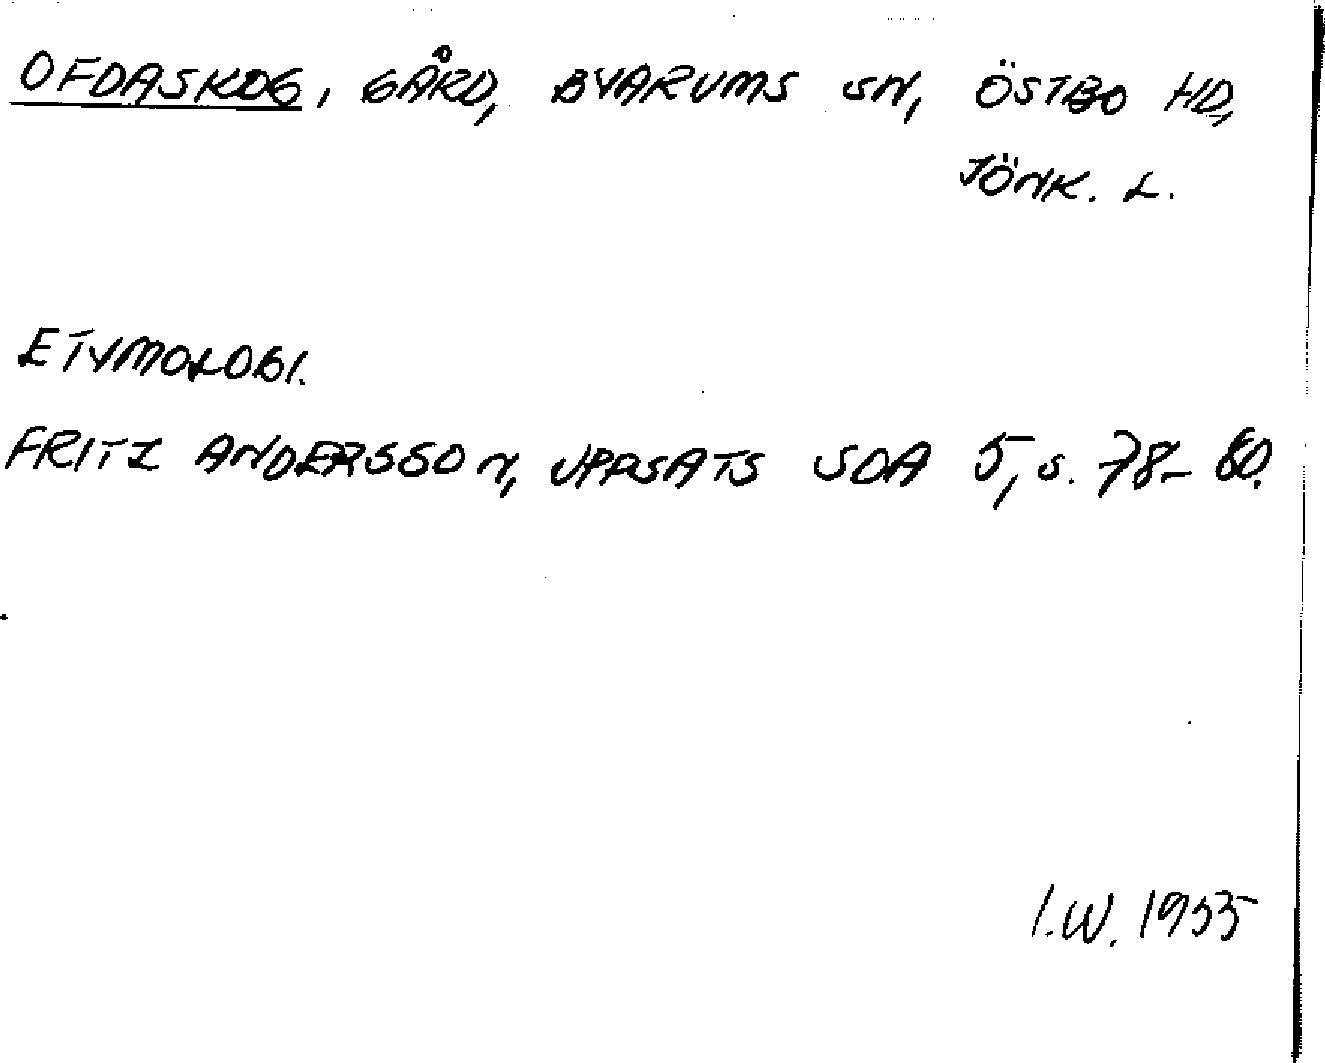 OFDASKOG, GÅRD, BYARUMS SN, ÖSTBO HD,
JÖNK. L.
ETYMOLOGI.
FRITZ ANDERSSON, UPPSATS SOA 5, s. 78-80.
I.W. 1955